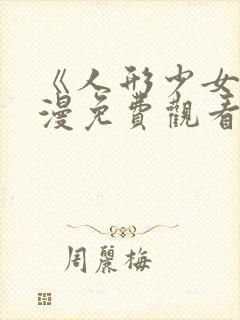 《人形少女
漫免費觀看
周麗梅